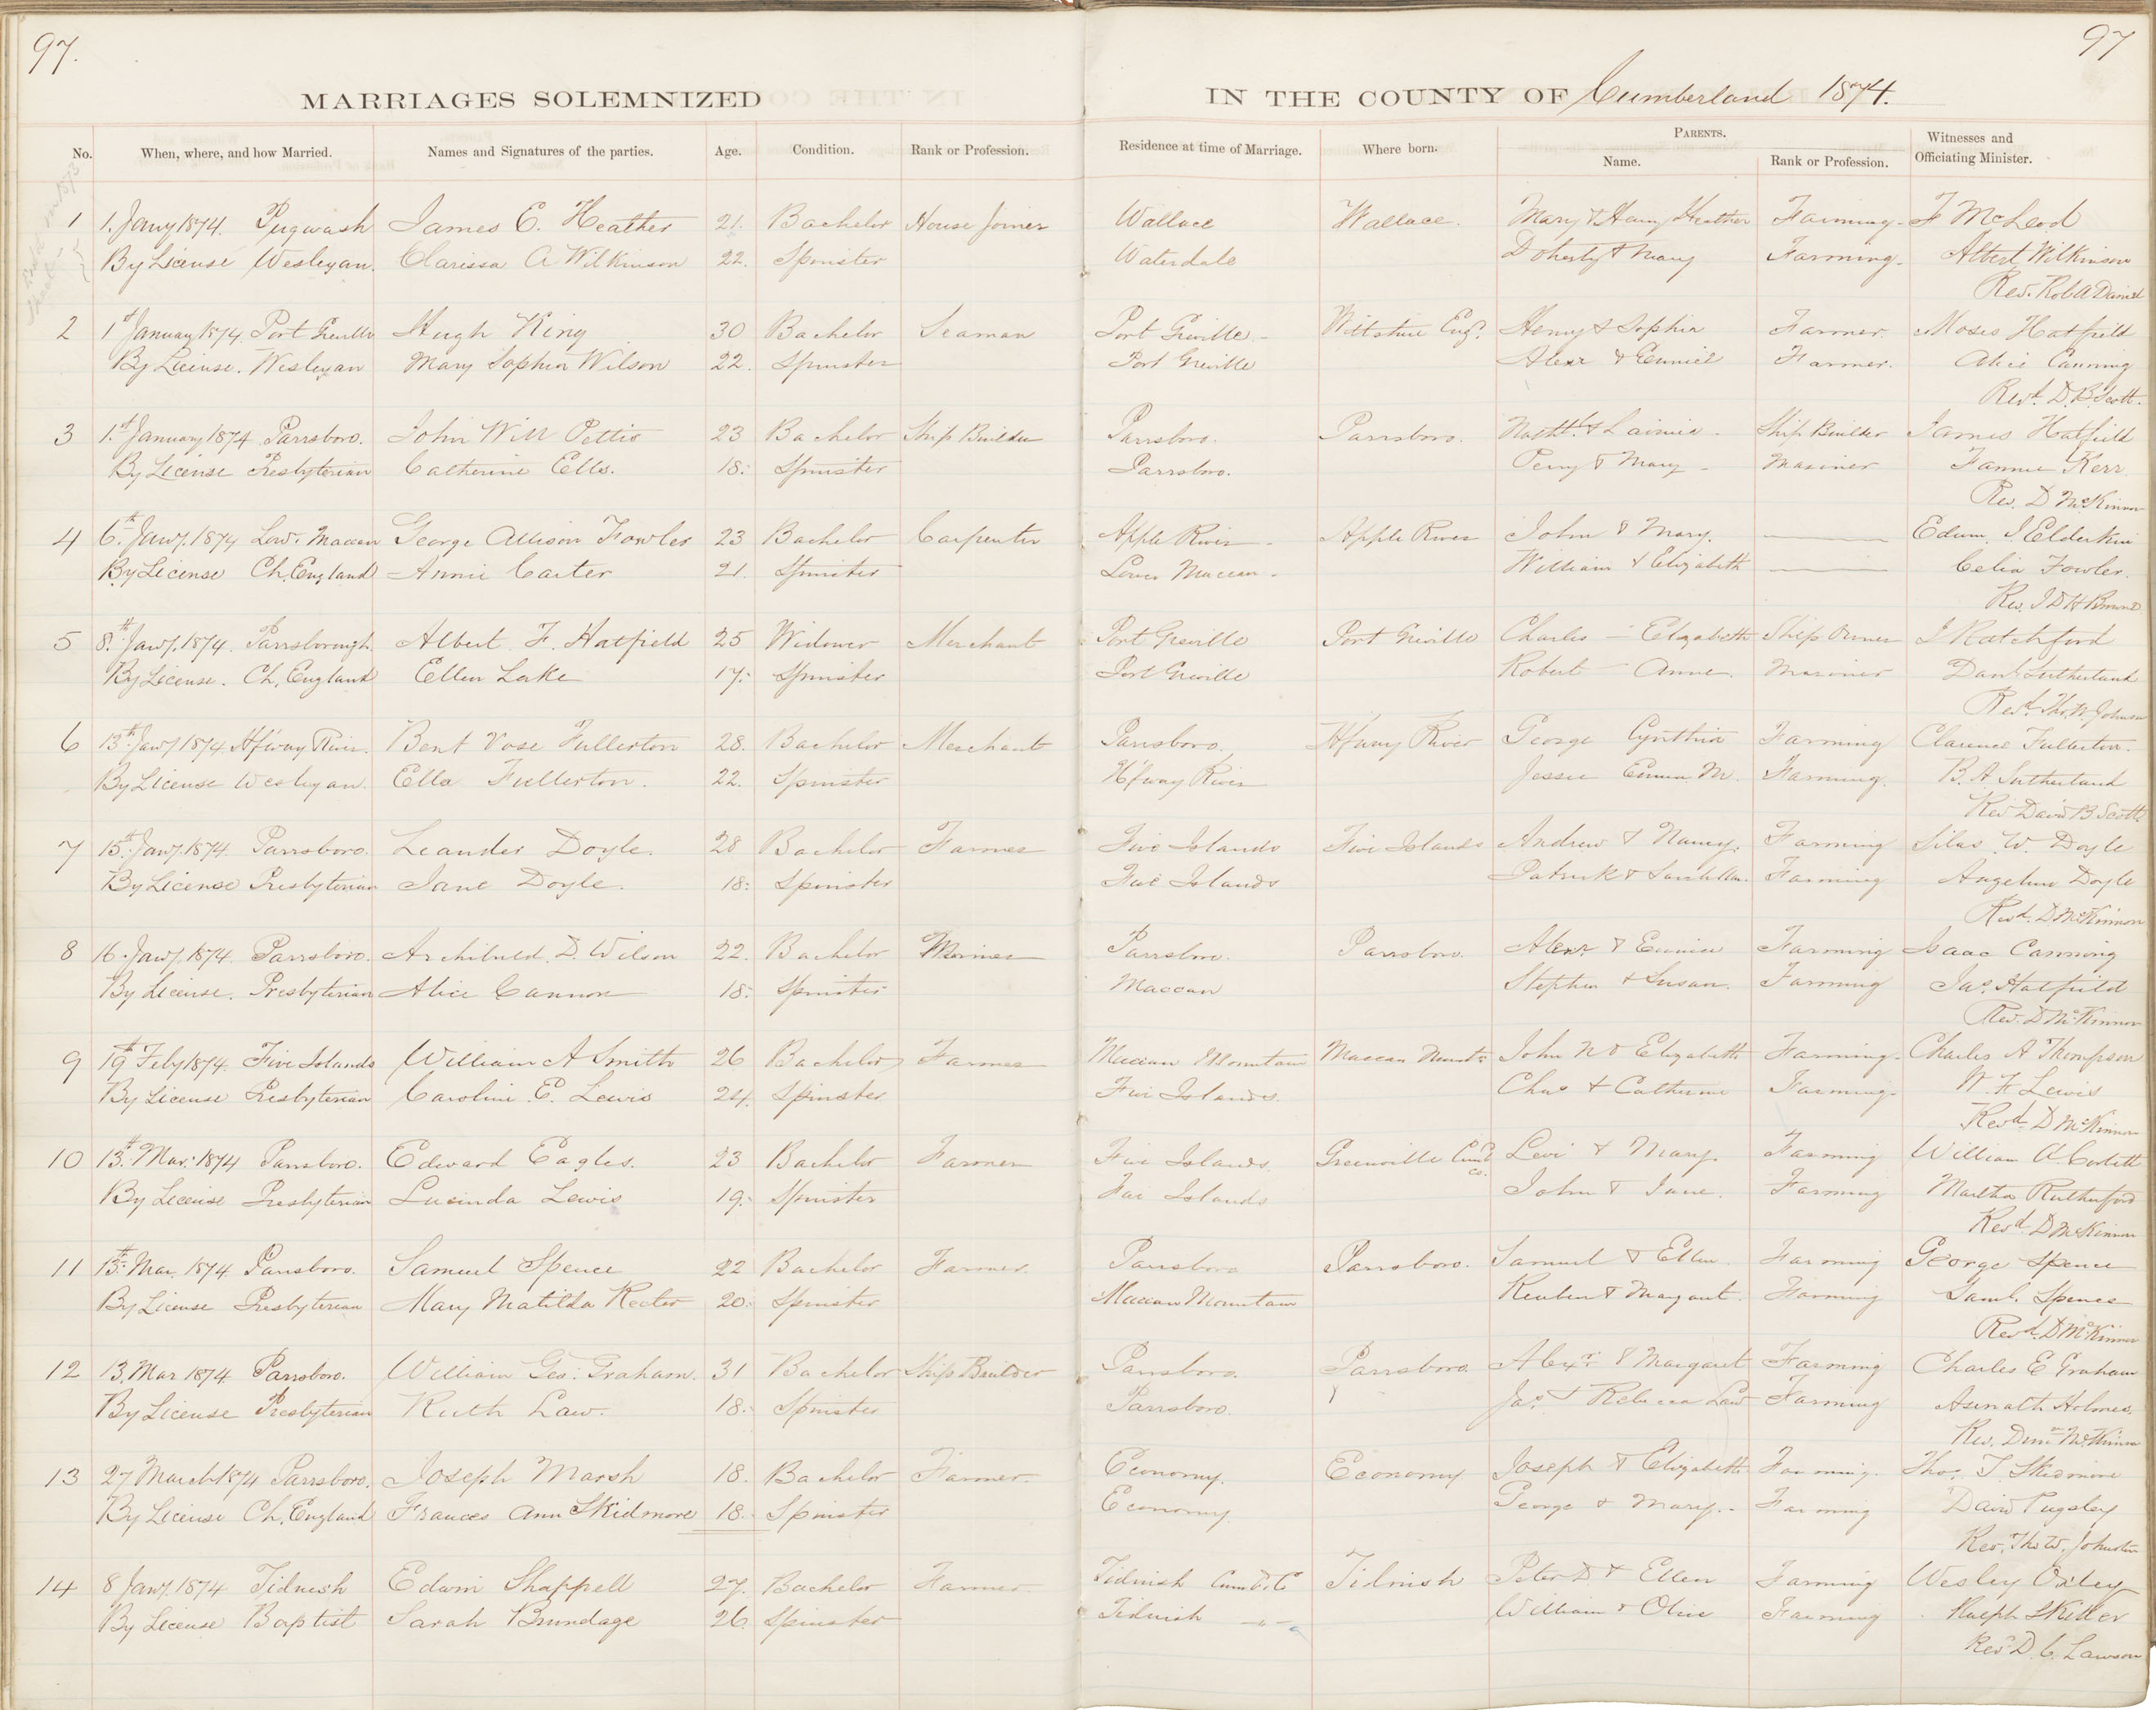 97.
97
MARRIAGES SOLEMNIZED IN THE COUNTY OF Cumberland 1874.
No. When, where, and how Married. Names and Signatures of the parties. Age. Condition. Rank or Profession. Residence at time of Marriage. Where born. PARENTS. Name. Rank or Profession. Witnesses and Officiating Minister.
1 1. Jany 1874. Pugwash James E. Heather 21. Bachelor House Joiner Wallace Wallace. Mary & Heather Farming. F McLeod
By License Wesleyan. Clarissa A Wilkinson 22. Spinster Waterdale Doherty & Mary Farming. Albert Wilkinson
Rev. Robt A Daniel
2 1st January 1874. Port Greville Hugh King 30 Bachelor Seaman Port Greville Wiltshire Engd. Henry & Sophia Farmer. Moses Hatfield
By License. Wesleyan Mary Sophia Wilson 22. Spinster Port Greville Alexr & Eunice Farmer. Alice Canning
Revd. D. B. Scott.
3 1.st January 1874 Parrsboro. John Will Pettis 23 Bachelor Ship Builder Parrsboro. Parrsboro. & Ship Builder James Hatfield
By License Presbyterian Catherine Ells. 18. Spinster Parrsboro. Perry & Mary Mariner Fannie Kerr
Rev. D McKinnon
4 6.th Jany. 1874 Low. Maccan George Allison Fowler 23 Bachelor Carpenter Apple River Apple River John & Mary. Edwm. I Elderkin
By License Ch. England Annie Carter 21. Spinster Lower Maccan William & Elizabeth Celia Fowler.
Rev. J D H Browne
5 8.th Jany. 1874. Parrsborough. Albert F. Hatfield 25 Widower Merchant Port Greville Port Greville Charles - Elizabeth Ship Owner J Ratchford
By License. Ch. England Ellen Lake 17. Spinster Port Greville Robert - Anne. Mariner Danl Sutherland
Revd. Tho. W. Johnson
6 13th. Jany 1874 Hfway River. Bent Vose Fullerton 28. Bachelor Merchant Parrsboro. Hfway River George Cynthia Farming Clarence Fullerton.
By License Wesleyan. Ella Fullerton. 22. Spinster Hfway River Jessie Emma M. Farming. B. A Sutherland
Rev David B Scott
7 15th. Jany. 1874. Parrsboro. Leander Doyle. 28 Bachelor Farmer Five Islands Five Islands Andrew & Nancy. Farming Silas W. Doyle
By License Presbyterian Jane Doyle. 18. Spinster Five Islands Patrick & Farming Angelina Doyle
Revd. D McKinnon
8 16. Jany. 1874. Parrsboro. Archibald. D. Wilson 22. Bachelor Mariner Parrsboro. Parrsboro. Alexr & Eunice Farming Isaac Canning
By License. Presbyterian Alice Cannon 18. Spinster Maccan Stephen & Susan. Farming Jas. Hatfield
Rev. D McKinnon
9 19th Feby 1874. Five Islands William A Smith 26 Bachelor Farmer Maccan Mountain Maccan Mount. John N & Elizabeth Farming. Charles A Thompson
By License Presbyterian Caroline. E. Lewis 24. Spinster Five Islands. Chas & Catherine Farming. W. F. Lewis
Revd. D McKinnon
10 13th. Mar. 1874 Parrsboro. Edward Eagles. 23 Bachelor Farmer Five Islands. Greenville Cumbd. Co. Levi & Mary. Farming William A. Corbett
By License Presbyterian Lucinda Lewis 19. Spinster Five Islands John & Jane. Farming Martha Rutherford
Revd D McKinnon
11 13th. Mar. 1874. Parrsboro. Samuel Spence 22 Bachelor Farmer. Parrsboro Parrsboro. Samuel & Ellen. Farming George Spence
By License Presbyterian Mary Matilda Rector 20. Spinster Maccan Mountain Reuben & Margaret. Farming Saml. Spence
Revd. D McKinnon
12 13. Mar 1874. Parrsboro. William Geo: Graham. 31 Bachelor Ship Builder Parrsboro. Parrsboro. Alexr. & Margaret Farming Charles E Graham
By License Presbyterian Ruth Law. 18. Spinster Parrsboro. Jas. & Rebecca Law Farming Asenath Holmes.
Rev. McKinnon
13 27 March 1874 Parrsboro. Joseph Marsh 18. Bachelor Farmer. Economy. Economy Joseph & Elizabeth Farming. Thos. T. Skidmore
By License Ch. England Frances Ann Skidmore 18. Spinster Economy. George & Mary. Farming David Pugsley
Rev. Tho W. Johnston
14 8 Jany. 1874 Tidnish Edwin Shappell 27. Bachelor Farmer. Tidnish Cumb. Co Tidnish Peter D & Ellen Farming Wesley Oxley
By License Baptist Sarah Brundage 26. Spinster Tidnish -"- William & Olive Farming Ralph Skitter
Revd D. C. Lawson